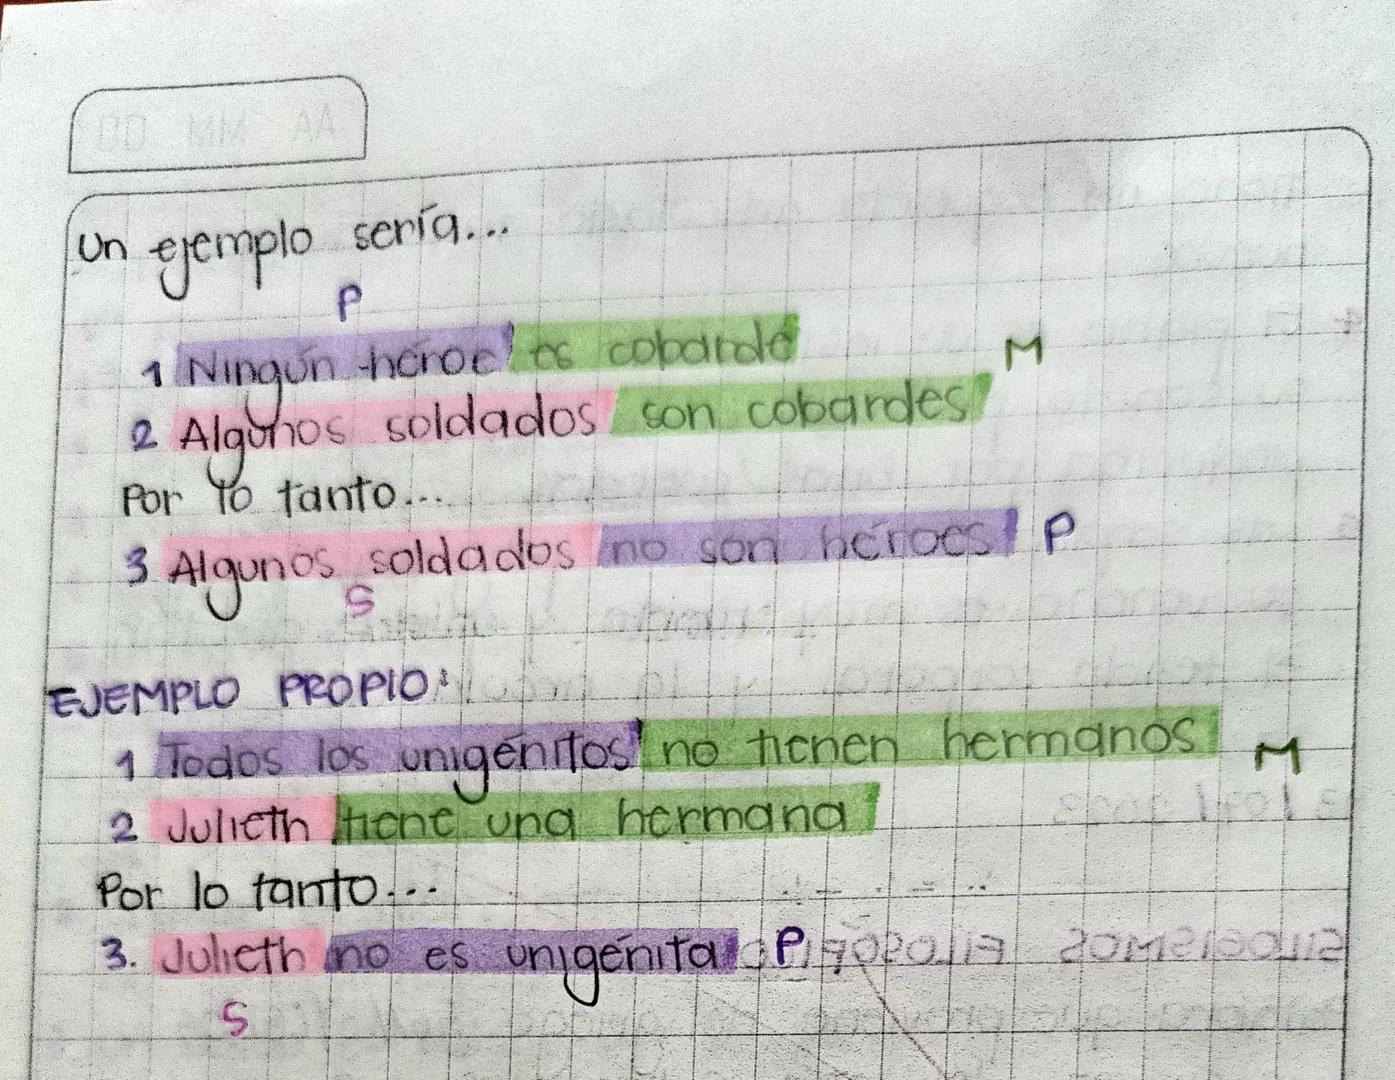 DD MM AA
Un ejemplo sería...
P
1 Ningún héroe es cobarde
M
2 Algunos soldados son cobardes
Por lo tanto...
3 Algunos soldados no son héroes P
S
EJEMPLO PROPIO:
1 Todos los unigénitos no tienen hermanos
M
2 Julieth tiene una hermana
Por lo tanto...
3. Julieth no es unigénita P
S